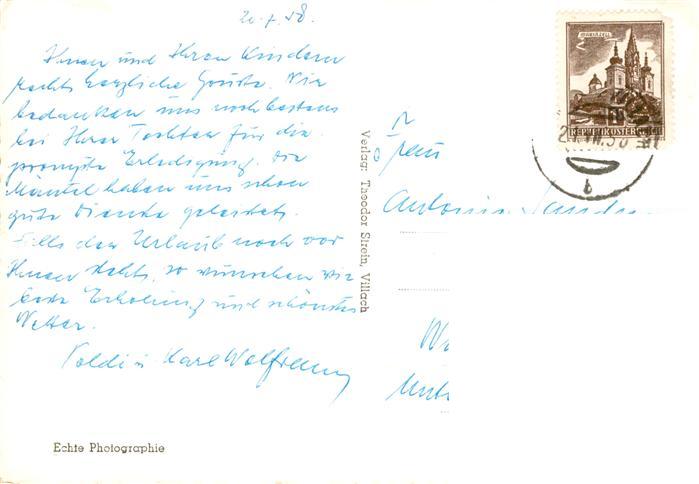 20.7.58.
Ihnen und Ihren Kindern
recht herzliche Grüße. Wir
bedanken uns noch bestens
bei Ihrer Tochter für die
prompte Erledigung. Die
Mäntel haben uns schon
gute Dienste geleistet.
Falls der Urlaub noch vor
Ihnen steht, so wünschen wir
gute Erholung und schönstes
Wetter.
Poldi u Karl Wolfram
Echte Photographie
Verlag: Theodor Strein, Villach
MARIAZELL
REPUBLIK ÖSTERREICH
b
Frau
Antonia